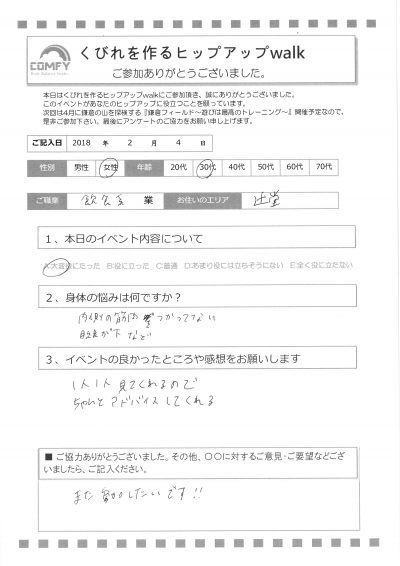 COMFY
くびれを作るヒップアップwalk
ご参加ありがとうございました。
本日はくびれを作るヒップアップwalkにご参加頂き、誠にありがとうございました。
このイベントがあなたのヒップアップに役立つことを願っています。
次回は4月に鎌倉の山を探検する『鎌倉フィールド~遊びは最高のトレーニング~』開催予定なので、
是非ご参加下さい、最後にアンケートのご協力をお願い申し上げます。
ご記入日 2018 年 2 月 4 日
性別 男性 女性 年齢 20代 30代 40代 50代 60代 70代
ご職業 飲食 業 お住いのエリア 辻堂
1、本日のイベント内容について
A:大変役にたった B:役に立った C:普通 D:あまり役には立ちそうにない E:全く役に立たない
2、身体の悩みは何ですか?
内側の筋肉 つかってない
など
3、イベントの良かったところや感想をお願いします
1人1人見てくれるので
ちゃんとアドバイスしてくれる
■ ご協力ありがとうございました。その他、〇〇に対するご意見・ご要望などござ
いましたら、ご記入ください。
また参加したいです!!